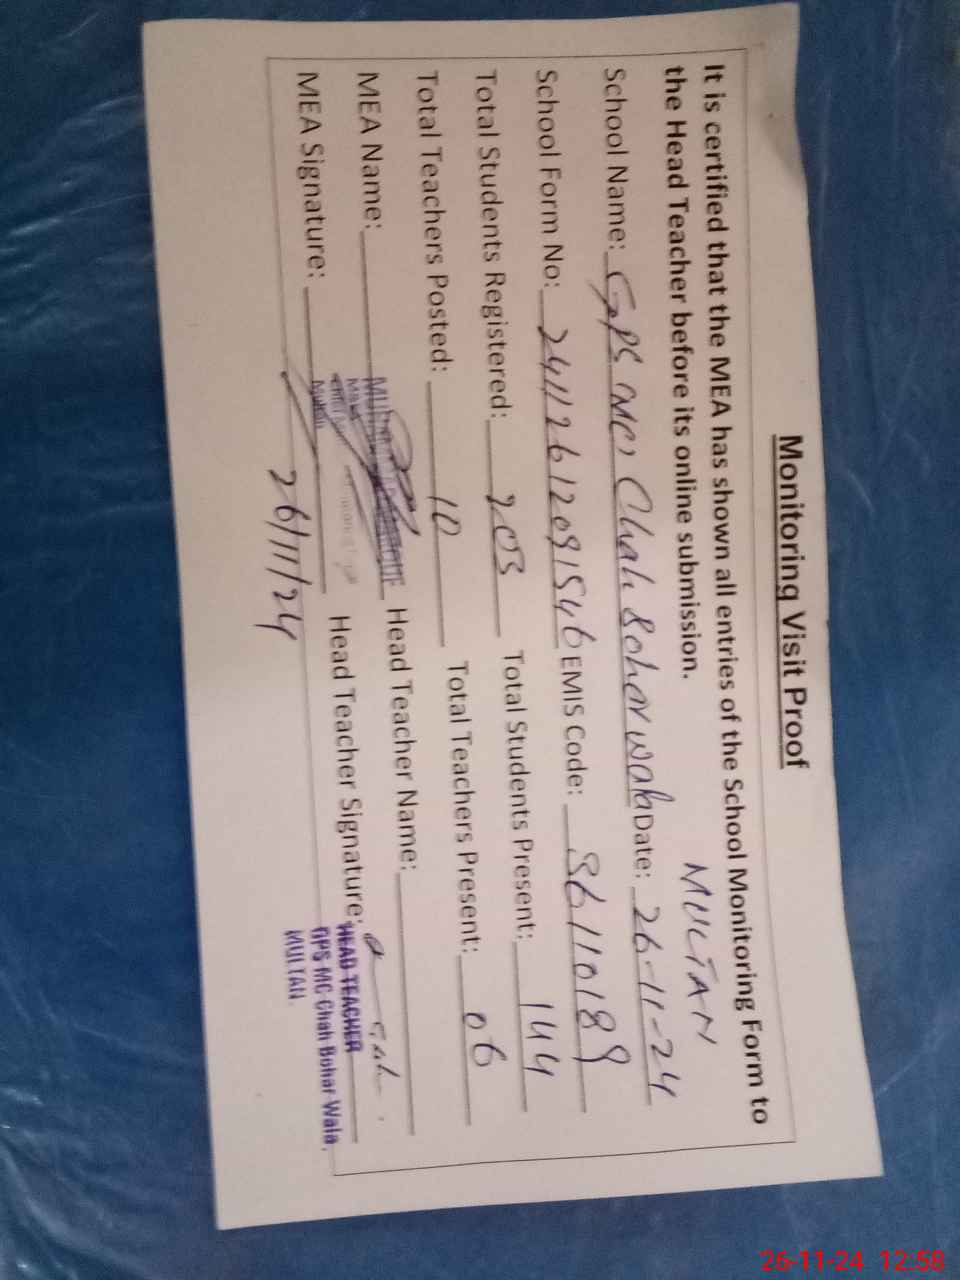 Monitoring Visit Proof
It is certified that the MEA has shown all entries of the School Monitoring Form to
the Head Teacher before its online submission.
MULTAN
School Name: GPS MC, Chah Bohar wala Date: 26-11-24
School Form No: 24112612091546 EMIS Code: 36110189
Total Students Registered: 203 Total Students Present: 144
Total Teachers Posted: 10 Total Teachers Present: 06
MEA Name: Head Teacher Name:
MEA Signature: Head Teacher Signature:
HEAD TEACHER
GPS MC Chah Bohar Wala,
MULTAN
26/11/24
26-11-24 12:58